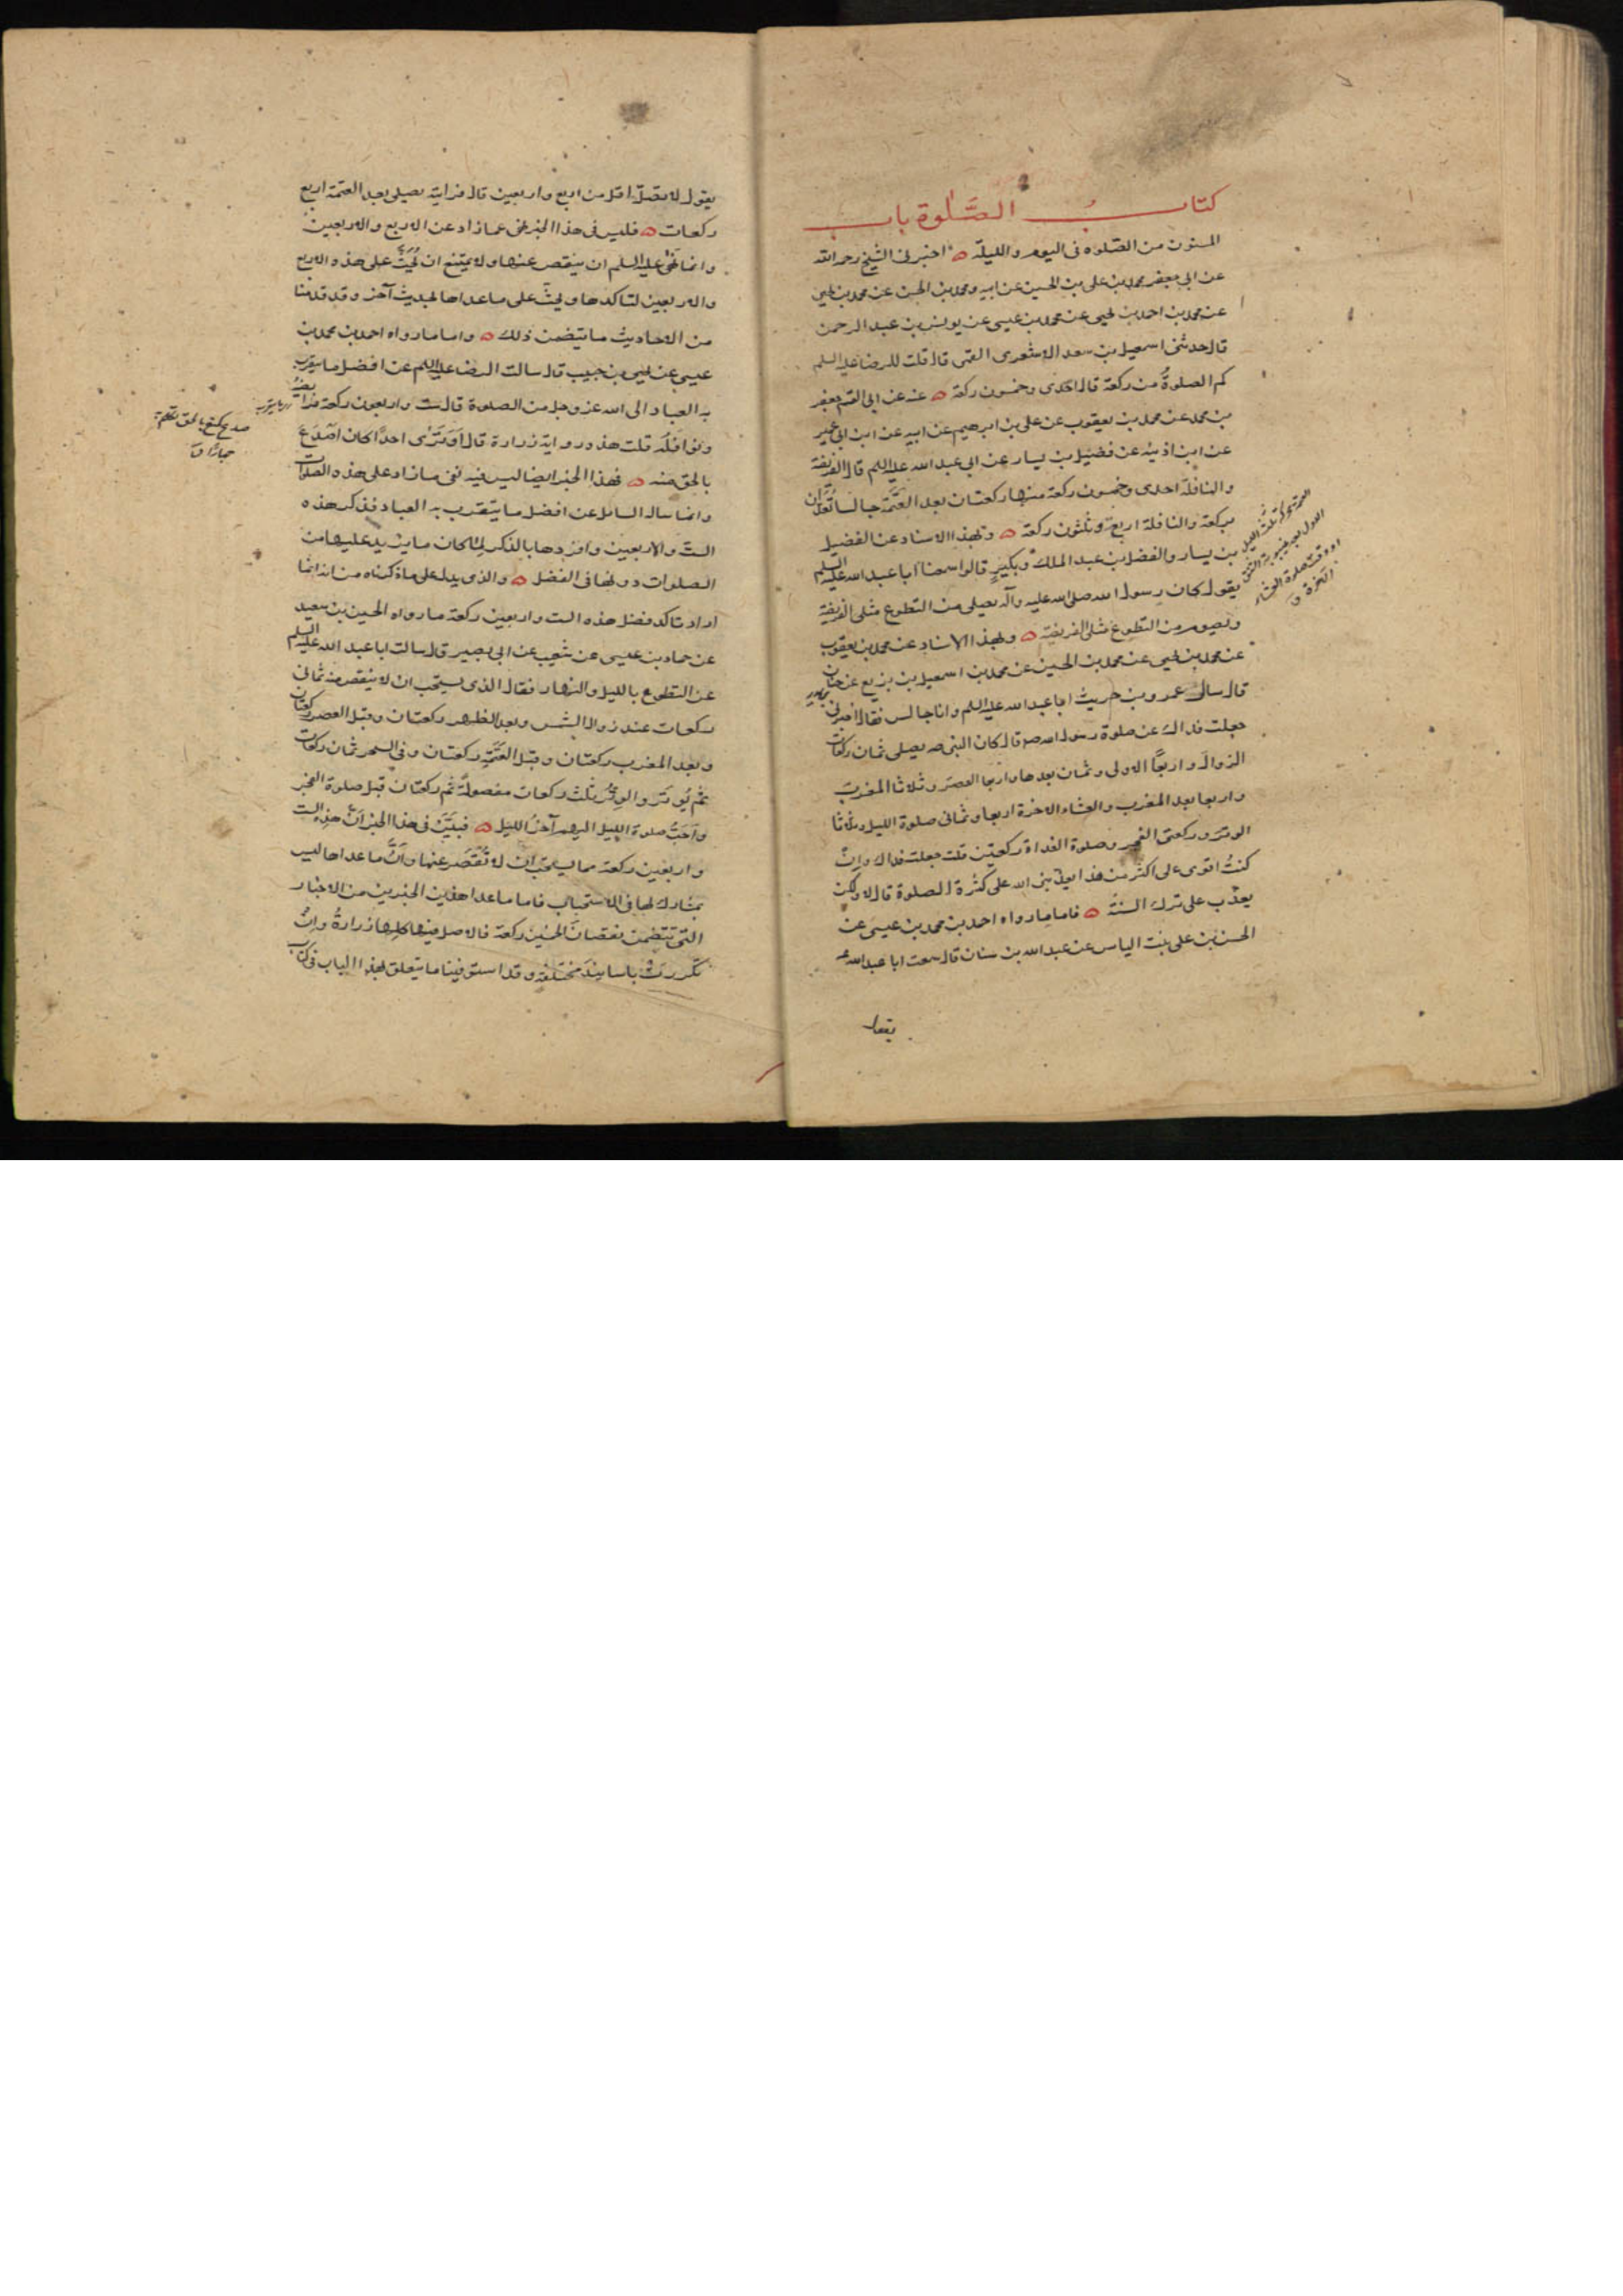 كتاب الصَّلوة باب
المسنون من الصّلوة فى اليوم والليلة ه اخبرنى الشيخ رحمه الله
عن ابى جعفر محمد بن على بن الحسين عن ابيه ومحمد بن الحسن عن محمد بن يحيى
عن محمد بن احمد بن يحيى عن محمد بن عيسى عن يونس بن عبد الرحمن
قال حدثنى اسمعيل بن سعد الاشعرى القمى قال قلت للرضا عليه السلم
كم الصلوةُ من ركعة قال احدى وخمسون ركعة ه عنه عن ابى القسم جعفر
بن محمد عن محمد بن يعقوب عن على بن ابرهيم عن ابيه عن ابن ابى عمير
عن ابن اذينه عن فضيل بن يسار عن ابى عبد الله عليه السلم قال الفريضة
والنافلة احدى وخمسون ركعة منها ركعتان بعد العَتَمَة جالسا تُعَدّان
بركعة والنافلة اربعة وثلثون ركعة ه وبهذا الاسناد عن الفضيل
بن يسار والفضل بن عبد الملك وبكيرٍ قالوا سمعنا ابا عبد الله عليه السلم
يقول كان رسول الله صلى الله عليه وآله يصلى من التطوع مثلى الفريضة
ويصوم من التطوع مثلى الفريضة ه وبهذا الاسناد عن محمد بن يعقوب
عن محمد بن يحيى عن محمد بن الحسين عن محمد بن اسمعيل بن بزيع عن حنان
بن سدير
قال سال عمرو بن حريث ابا عبد الله عليه السلم وانا جالس فقال اخبرنى
جعلت فداك عن صلوة رسول الله ص قال كان النبى صه يصلى ثمان ركعات
الزوال واربعًا الاولى وثمان بعدها واربعا العصر وثلاثا المغرب
واربعا بعد المغرب والعشاء الاخرة اربعا وثمانى صلوة الليل وثلاثا
الوتر وركعتى الفجر وصلوة الغداة ركعتين قلت جعلت فداك وانْ
كنتُ اقوى على اكثر من هذا يعذّبنى الله على كثرة الصلوة قال لا ولكن
يعذّب على ترك السنة ه فاما ما رواه احمد بن محمد بن عيسى عن
الحسن بن على بنت الياس عن عبد الله بن سنان قال سمعت ابا عبد الله ع
يقول
العتمة محركة ثلث الليل
الاول بعد غيبوبة الشفق
او وقت صلوة العشاء
الآخرة ق
يقول لا تصلّ اقل من اربع واربعين قال ورايته يصلى بعد العتمة اربع
ركعات ه فليس فى هذا الخبر نهى عما زاد عن الاربع والاربعين
وانما نَهْى عليه السلم ان ينقص عنها ولا يمتنع ان يُحَثَّ على هذه الاربع
والاربعين لتاكدها ويحثّ على ما عداها بحديث آخر وقد قدمنا
من الاحاديث ما يتضمن ذلك ه واما ما رواه احمد بن محمد بن
عيسى عن يحيى بن حبيب قال سالت الرضا عليه السلم عن افضل ما يتقرب
به العباد الى الله عز وجل من الصلوة قال ست واربعون ركعة فرائضه
ونوافله قلت هذه رواية زرارة قال اَوَتَرَى احدًا كان اَصْدَعَ
بالحق منه ه فهذا الخبر ايضا ليس فيه نفى ما زاد على هذه الصلوات
وانما ساله السائل عن افضل ما يتقرب به العباد فذكر هذه
الست والاربعين وافردها بالذكر لِمَا كان ما يزيد عليها من
الصلوات دونها فى الفضل ه والذى يدل على ما ذكرناه من انه انما
اراد تاكد فضل هذه الست واربعين ركعة ما رواه الحسين بن سعيد
عن حماد بن عيسى عن شعيب عن ابى بصير قال سالت ابا عبد الله عليه السلم
عن التطوع بالليل والنهار فقال الذى يستحب ان لا ينقص منه ثمانى
ركعات عند زوال الشمس وبعد الظهر ركعتان وقبل العصر ركعتان
وبعد المغرب ركعتان وقبل العَتَمَةِ ركعتان وفى السحر ثمان ركعات
ثم يُوتَر والوِترُ ثلث ركعات مفصولة ثم ركعتان قبل صلوة الفجر
واَحَبُّ صلوة الليل اليهم آخرُ الليل ه فبيَّن فى هذا الخبر اَنَّ هذه الست
واربعين ركعة مما يستحب ان لا تُقَصّر عنها واَنَّ ما عداها ليس
بمشارك لها فى الاستحباب فاما ما عدا هذين الخبرين من الاخبار
التى تتضمن نقصان الخمسين ركعة فالاصل فيها كلها زرارةُ وانْ
تكررت باسانيد مختلفة وقد استوفينا ما يتعلق بهذا الباب فى كتاب
صدع كمنع بالحق تكلم به
جهارًا ق